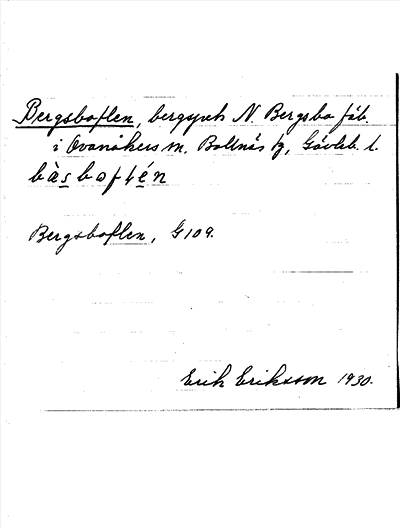 Bergsboflen, bergspets N. Bergsbo fäb.
i Ovanåkers sn. Bollnäs tg, Gävleb. l.
bàsboflén
Bergsboflen, G109.
Erik Eriksson 1930.